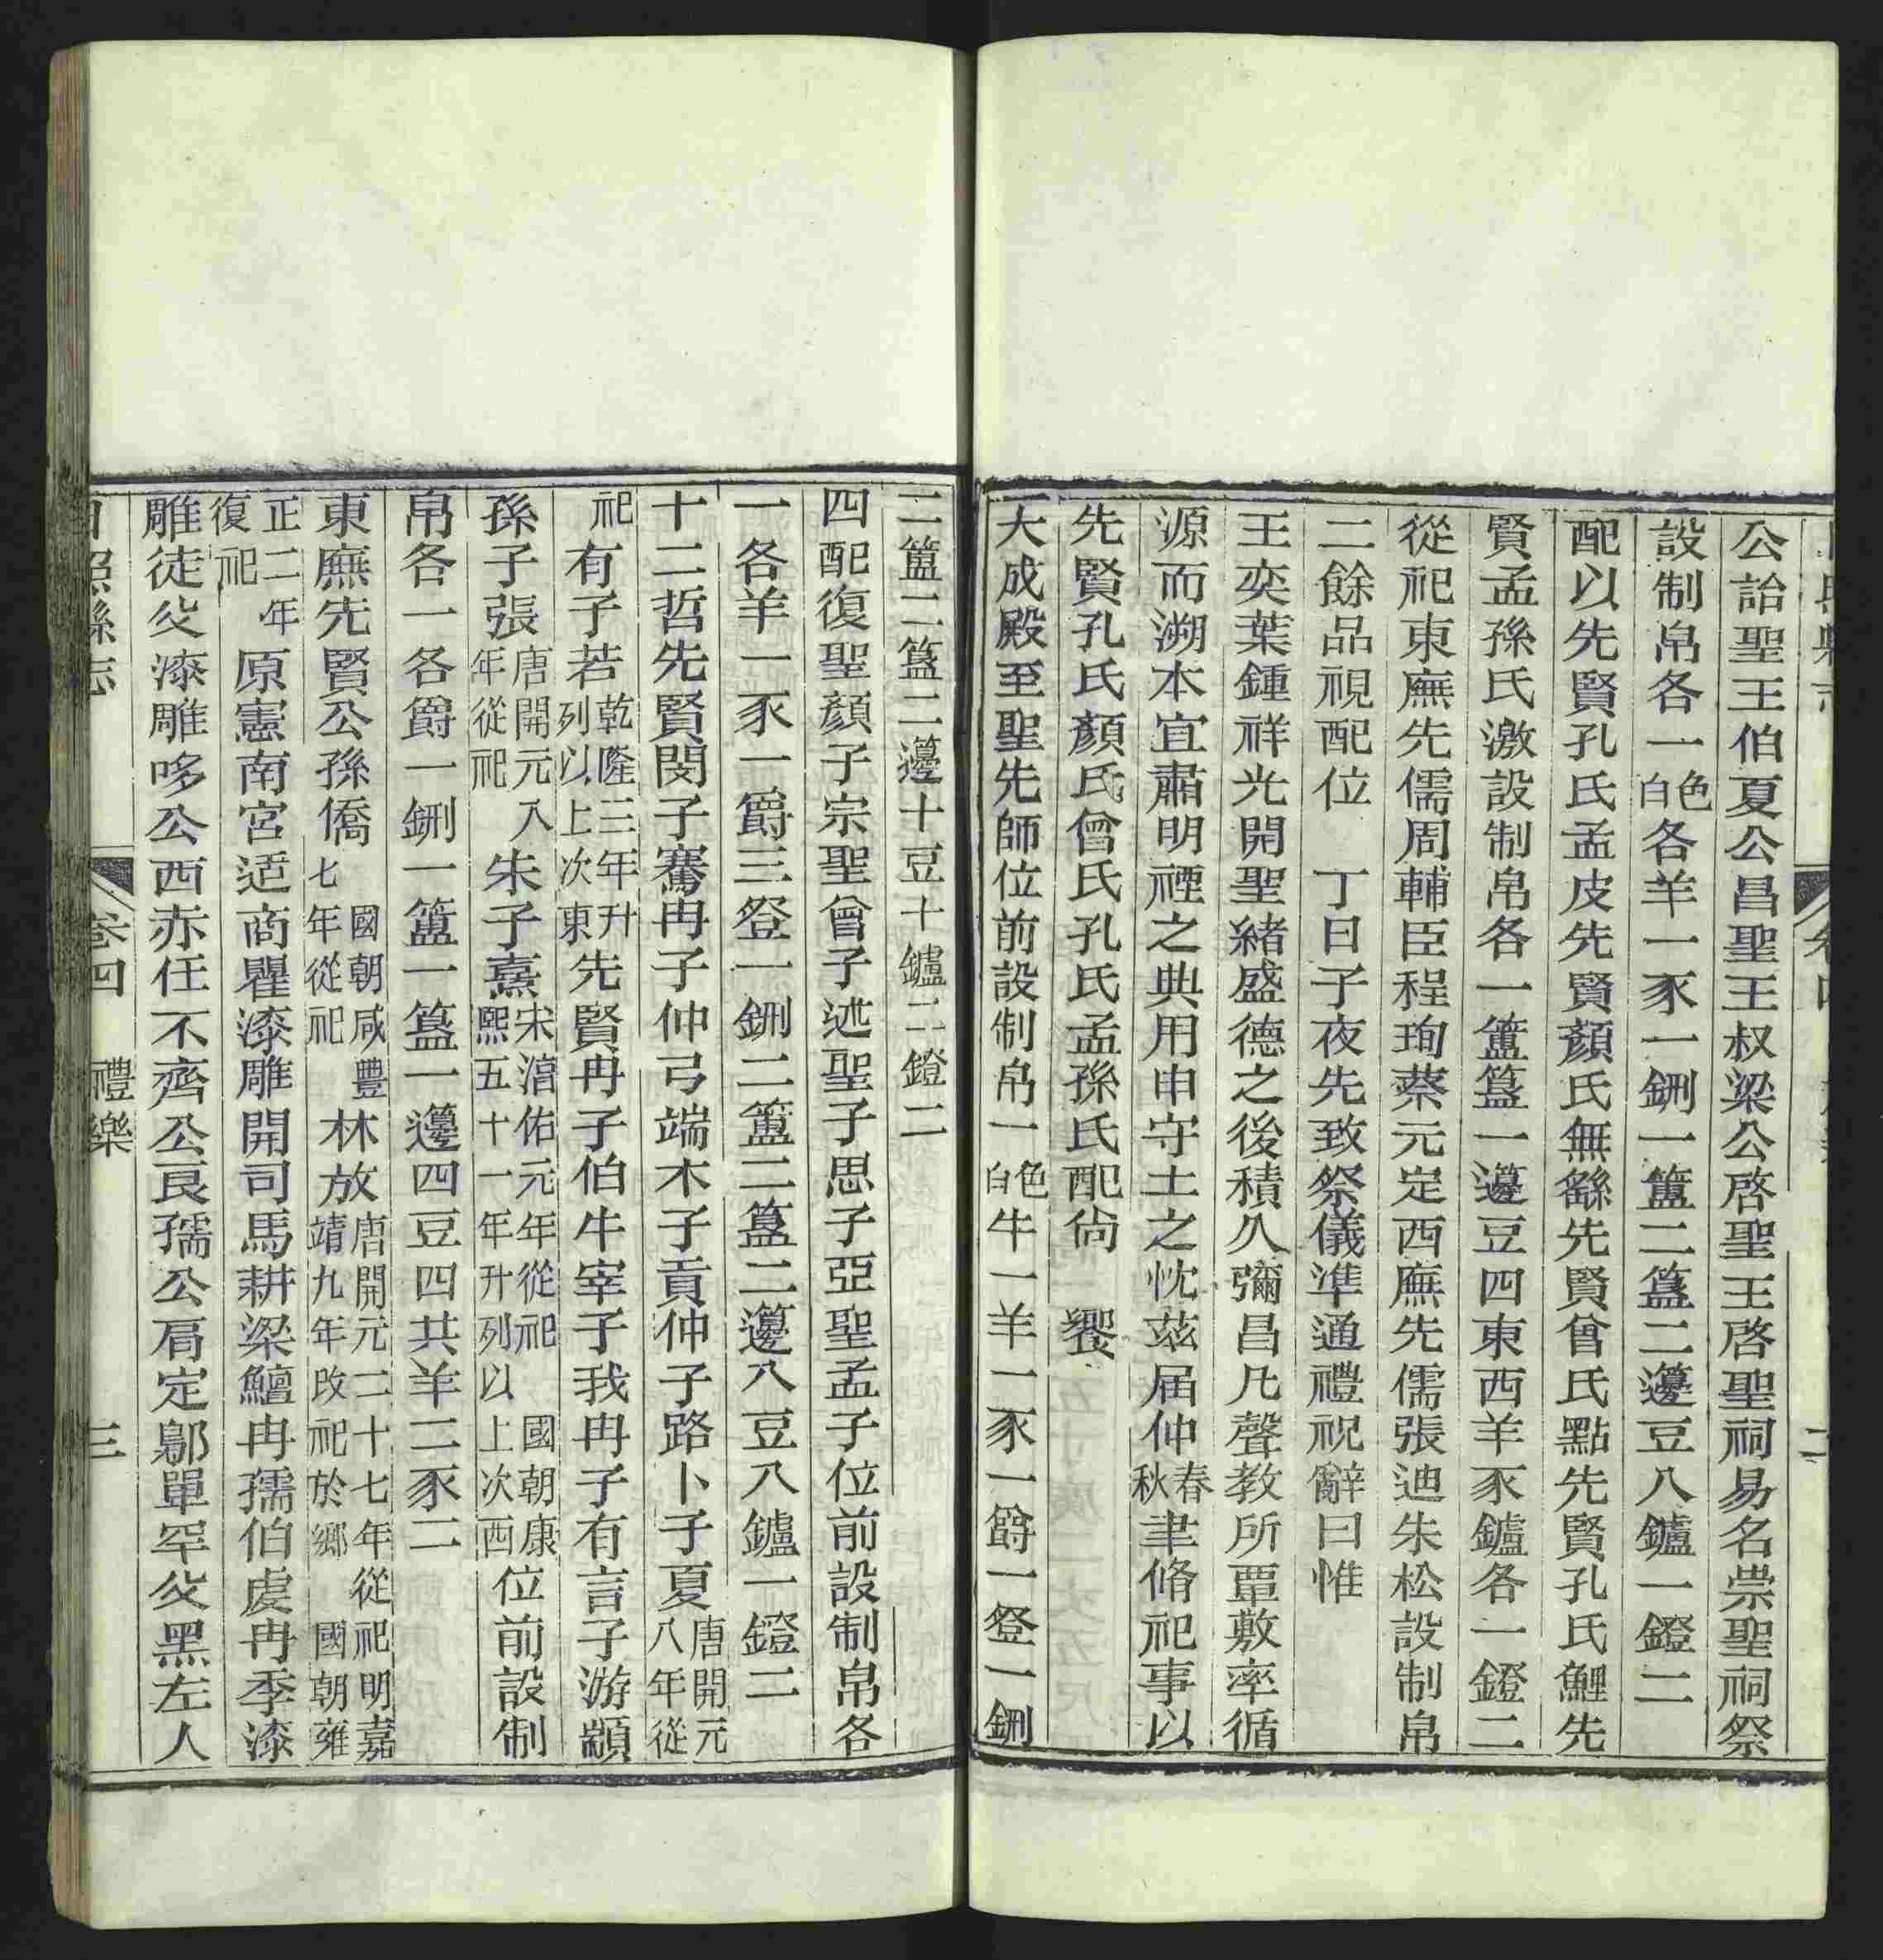 公詒聖王伯夏公昌聖王叔梁公啓聖王啓聖祠易名崇聖祠祭
設制帛各一白色各羊一豕一鉶一簠二簋二籩豆八鑪一鐙二
配以先賢孔氏孟皮先賢顏氏無繇先賢曾氏點先賢孔氏鯉先
賢孟孫氏激設制帛各一簠簋一籩豆四東西羊豕鑪各一鐙二
從祀東廡先儒周輔臣程珦蔡元定西廡先儒張迪朱松設制帛
二餘品視配位 丁日子夜先致祭儀準通禮祝辭曰惟
王奕葉鍾祥光開聖緒盛德之後積久彌昌凡聲教所覃敷率循
源而溯本宜肅明禋之典用申守土之忱茲届仲春秋聿脩祀事以
先賢孔氏顏氏曾氏孔氏孟孫氏配尙 饗
大成殿至聖先師位前設制帛一白色牛一羊一豕一爵一登一鉶
二簠二簋二籩十豆十鑪二鐙二
四配復聖顏子宗聖曾子述聖子思子亞聖孟子位前設制帛各
一各羊一豕一爵三登一鉶二簠二簋二籩八豆八鑪一鐙二
十二哲先賢閔子騫冉子仲弓端木子貢仲子路卜子夏唐開元八年從
祀有子若乾隆三年升列以上次東先賢冉子伯牛宰子我冉子有言子游顓
孫子張唐開元入年從祀朱子熹宋淳佑元年從祀熙五十一年升列以上次西國朝康位前設制
帛各一各爵一鉶一簠一簋一籩四豆四共羊二豕二
東廡先賢公孫僑國朝咸豐七年從祀林放唐開元二十七年從祀明嘉靖九年改祀於鄉國朝雍
正二年復祀原憲南宮适商瞿漆雕開司馬耕梁鱣冉孺伯虔冉季漆
雕徒父漆雕哆公西赤任不齊公良孺公肩定鄡單罕父黑左人
日照縣志 卷四 禮樂 三